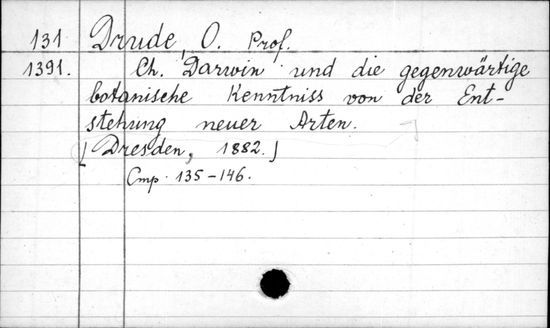 131. Drude, O. Prof.
1391. Ch. Darwin und die gegenwärtige
botanische Kenntniss von der Ent-
stehung neuer Arten.
[Dresden, 1882.]
Cmp. 135-146.